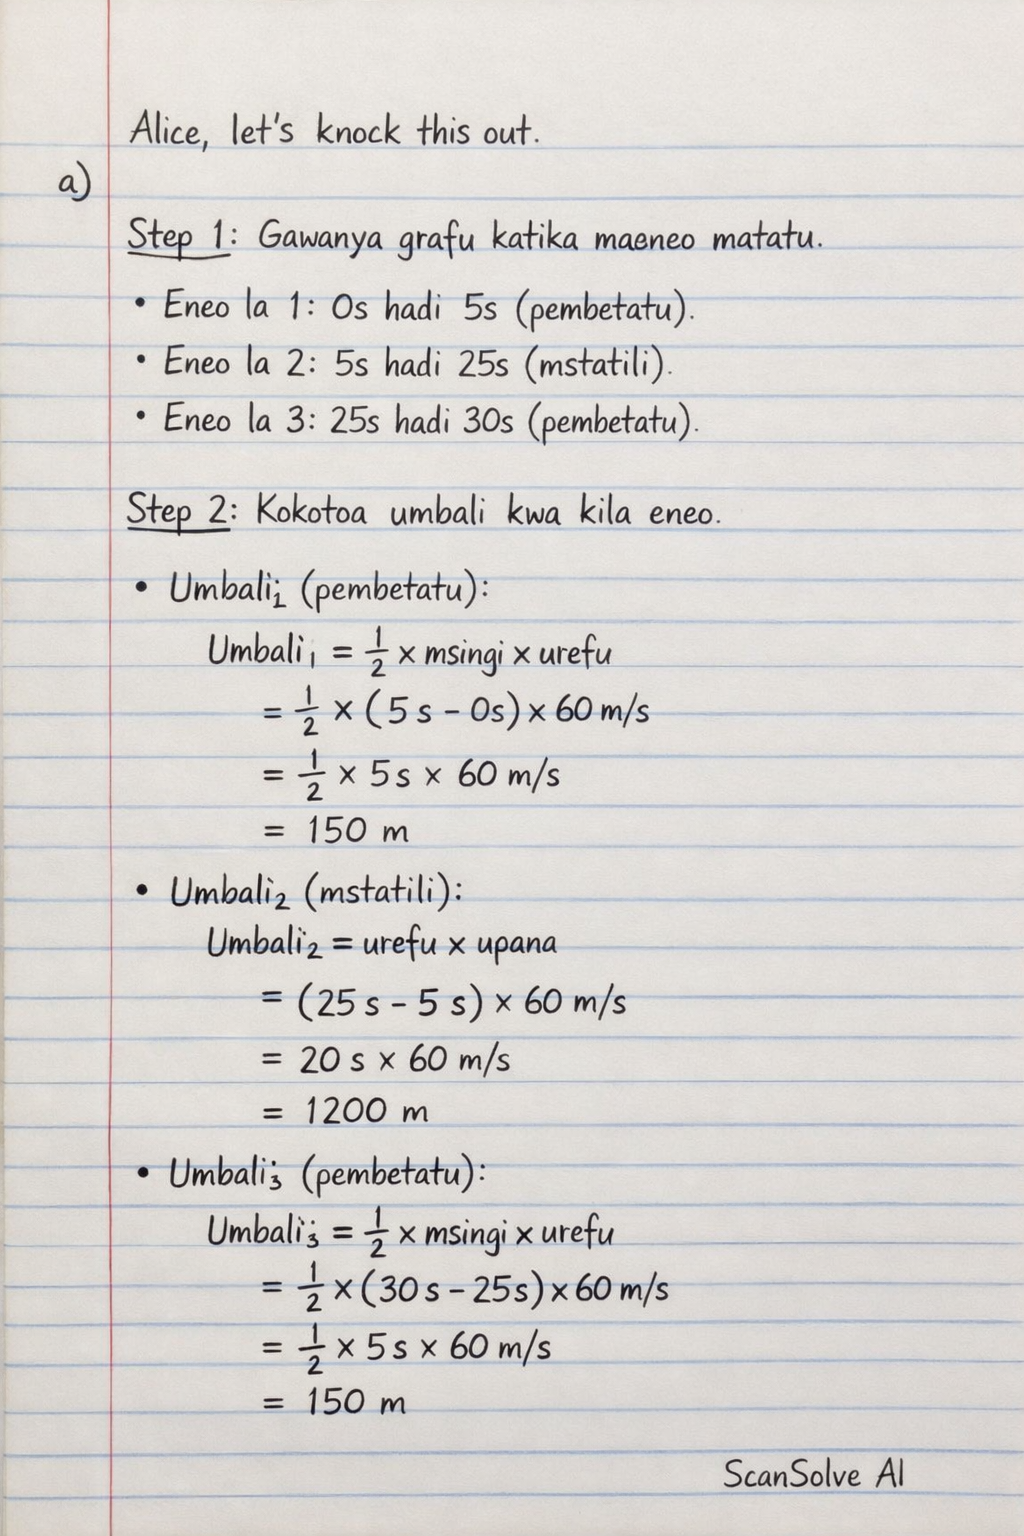 Alice, let's knock this out.
a)
Step 1: Gawanya grafu katika maeneo matatu.
• Eneo la 1: 0s hadi 5s (pembetatu).
• Eneo la 2: 5s hadi 25s (mstatili).
• Eneo la 3: 25s hadi 30s (pembetatu).
Step 2: Kokotoa umbali kwa kila eneo.
• Umbali₁ (pembetatu):
Umbali₁ = 1/2 × msingi × urefu
= 1/2 × (5 s − 0s) × 60 m/s
= 1/2 × 5 s × 60 m/s
= 150 m
• Umbali₂ (mstatili):
Umbali₂ = urefu × upana
= (25 s − 5 s) × 60 m/s
= 20 s × 60 m/s
= 1200 m
• Umbali₃ (pembetatu):
Umbali₃ = 1/2 × msingi × urefu
= 1/2 × (30 s − 25s) × 60 m/s
= 1/2 × 5 s × 60 m/s
= 150 m
ScanSolve AI